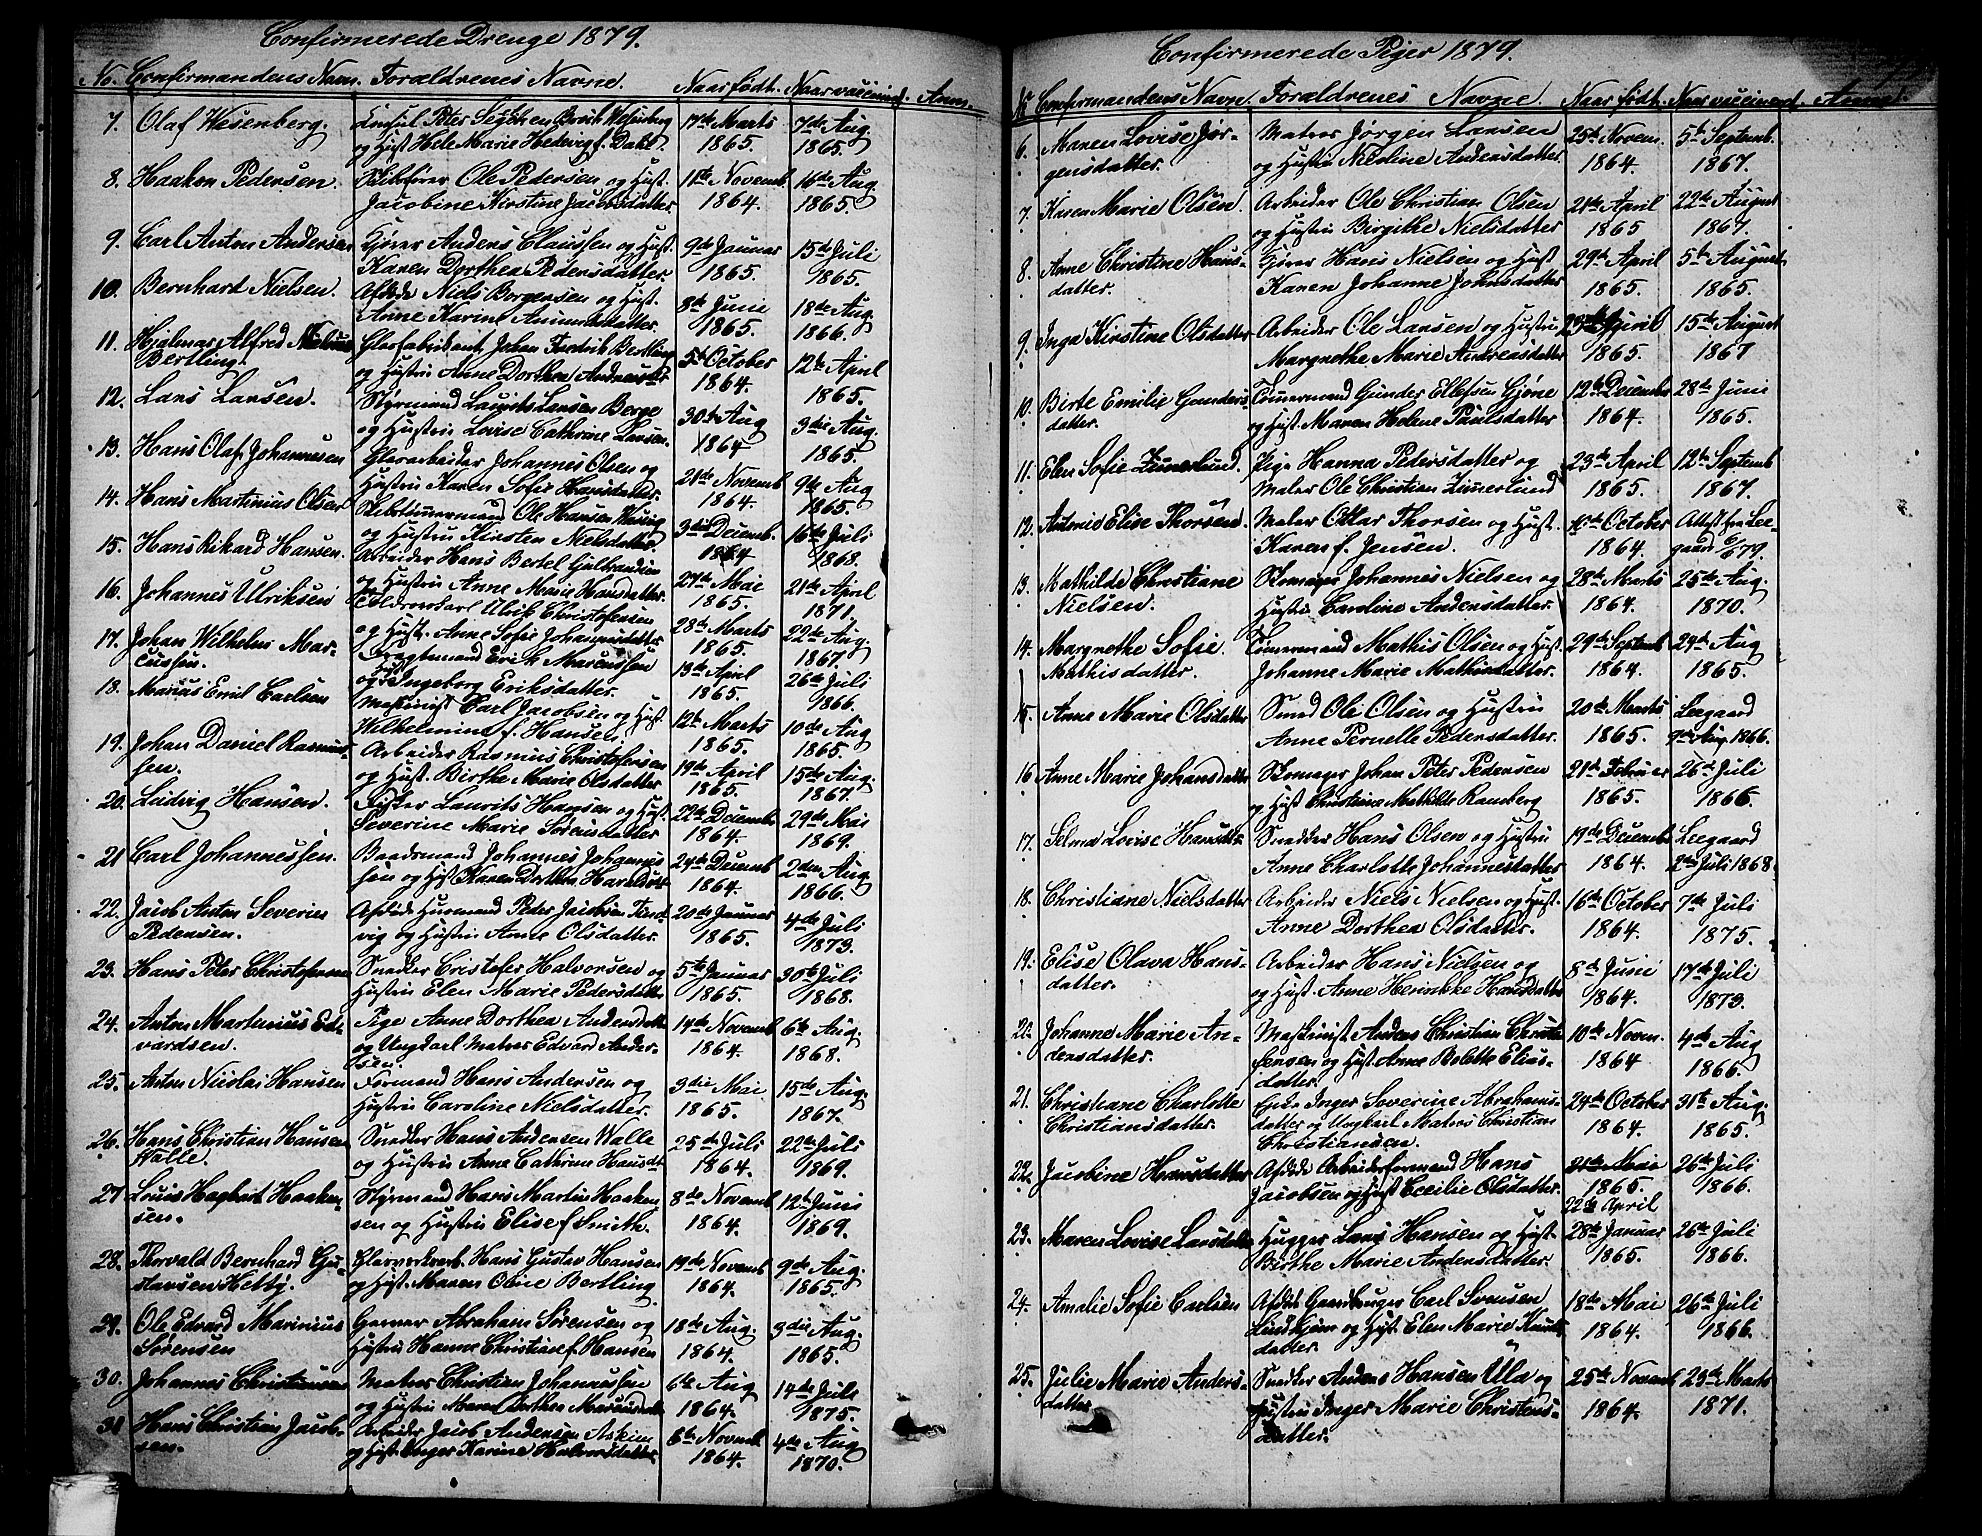 Confirmerede Drenge 1879.
No. Confirmandens Navn. Forældrenes Navne. Naar født. Naar vaccinerd. Anm.
7. Olaf Wesenberg. Peter Wesenberg 17de Marts 7de Aug.
og Hust Marie Hedevig f. Dahl 1865. 1865.
8. Haakon Pedersen. Skibsfører Ole Pedersen og Hust. 11te Novemb. 16de Aug.
Jacobine Kirstine Jacobsdatter. 1864. 1865.
9. Carl Anton Andersen Kjører Anders Claussen og Hust. 9de Januar 15de Juli
Karen Dorthea Pedersdatter. 1865. 1865.
10. Bernhard Nielsen. Afdøde Niels Borgersen og Hust. 8de Juni 18de Aug.
Anne Karine Amundsdatter. 1865. 1866.
11. Hjalmar Alfred Glasfabrikant Johan Fredrik Bertling 5te October 12te April
Bertling. og Hustru Anne Dorthea 1864. 1865.
12. Lars Larsen. Styrmand Laurits Larsen Berge 30te Aug 3die Aug.
og Hustru Lovise Cathrine Larsen. 1864 1865.
13. Hans Olaf Johannesen Glasarbeider Johannes Olsen og 21de Novemb 9de Aug
Hustru Karen Sofie Hansdatter. 1864. 1865.
14. Hans Martinius Olsen Skibstømmermand Ole Hansen 3die Decemb. 16de Juli
og Hustru Kirsten Nielsdatter. 1864 1868.
15. Hans Rikard Hansen. Arbeider Hans Bertel 27de Mai 21de April
og Hustru Anne Marie Hansdatter. 1865. 1871.
16. Johannes Ulriksen Ulrik Christofersen 28de Marts 22de Aug.
og Hustr. Anne Sofie Johannesdatter 1865. 1867.
17. Johan Wilhelm Mar- Fragtemand Erik Marcussen 13de April 26de Juli
cussen. og Ingeborg Eriksdatter. 1865. 1866.
18. Marius Emil Carlsen Maskinist Carl Jacobsen og Hust 12te Marts 10de Aug
Wilhelmine f. Hansen. 1865. 1865.
19. Johan Daniel Rasmus- Arbeider Rasmus Christofersen 19de April 15de Aug.
sen. og Hust. Birthe Marie Olsdatter. 1865. 1867.
20. Ludvig Hansen. Fisker Laurits Hansen og Hust 22de Decemb 29de Mai
Severine Marie Sørensdatter 1864. 1869.
21 Carl Johannessen. Baadsmand Johannes Johannes- 24de Decemb 2den Aug.
sen og Hust Karen Dorthea Haraldsdt 1864. 1866.
22. Jacob Anton Severin Afdøde Husmand Peder Jacobsen 20de Januar 4de Juli
Pedersen. vig og Hustru Anne Olsdatter. 1865. 1873.
23. Hans Peter Christofersen Snedker Cristofer Halvorsen og 5te Januar 30te Juli
Hustru Elen Marie Pedersdatter 1865. 1868.
24. Anton Martinius Ed- Pige Anne Dorthea Andersdatter 14de Novemb 6te Aug.
vardsen. og Ungkarl Matros Edvard Ander- 1864. 1868.
sen.
25. Anton Nicolai Hansen Formand Hans Andersen og 3die Mai 15de Aug.
Hustru Caroline Nielsdatter. 1865. 1867.
26. Hans Christian Hansen Snedker Hans Andersen Walle 25de Juli 22de Juli
Walle. og Hustru Anne Cathrine Hansdt 1864. 1869.
27 Louis Hagbart Haaken- Styrmand Hans Martin Haaken 8de Novemb 12te Juni
sen. sen og Hustru Elise f. Smith. 1864. 1869.
28. Thorvald Bernhard Gu- Glasværksarb. Hans Gustav Hansen 19de Novemb 9de Aug.
stavsen og Hust. Maren Oline Bertling 1864. 1865.
29. Ole Edvard Marinius Garver Abraham Sørensen og 18de Aug. 3die Aug.
Sørensen Hustru Hanne Christiane f. Hansen 1864. 1865.
30. Johannes Christiansen Matros Christian Johannessen 6te Aug 14de Juli
og Hustru Maren Dorthea 1864. 1875.
31 Hans Christian Jacob- Arbeider Jacob Andersen Askim 6te Novemb 4de Aug
sen. og Hust. Inger Karine Halvorsdatter. 1864. 1870.
Confirmerede Piger 1879.
No Confirmandens Navn. Forældrenes Navne. Naar født. Naar vaccinerd. Anm.
6. Maren Lovise Jør- Matros Jørgen Larsen 25de Novem. 5te Septemb.
gensdatter. og Hustru Nicoline Andersdatter. 1864. 1867.
7. Karen Marie Olsen. Arbeider Ole Christian Olsen 21de April 22de August
og Hustru Birgithe Nielsdatter 1865 1867.
8. Anne Christine Hans- Kjører Hans Nielsen og Hust 29de April 5te August.
datter. Karen Johanne Johnsdatter 1865. 1865.
9. Inga Kirstine Olsdatter Arbeider Ole Larsen og Hustru April 15de August
Margrethe Marie Andreasdatter 1865. 1867
10. Birte Emilie Gunders- Tømmermand Gunder Ellefsen Gjøne 12te Decemb 28de Juni
datter. og Hust. Maren Helene Paulsdatter 1864. 1865.
11. Elen Sofie Zimerlund. Pige Hanna Pedersdatter og 23de April 12te Septemb
Maler Ole Christian Zimerlund 1865. 1867.
12. Antonie Elise Thorsen. Maler Ottar Thorsen og Hust. 10de October Attest fra Lee-
Karen f. Jensen. 1864. gaard 6/6 79.
13. Mathilde Christiane Skomager Johannes Nielsen og 28de Marts 25de Aug.
Nielsen. Hustru Caroline Andersdatter. 1864. 1870.
14. Margrethe Sofie Tømmermand Mathis Olsen og Hust. 29de Septemb 24de Aug
Mathisdatter. Johanne Marie Mathisdatter. 1864. 1865.
15. Anne Marie Olsdatter Smed Ole Olsen og Hustru 20de Marts Leegaard
Anne Pernelle Pedersdatter. 1865. 9de Aug. 1866.
16 Anne Marie Johansdatter Skomager Johan Peter Pedersen 21de Februar 26de Juli
og Hust Christiane Mathilde Ramberg 1865. 1866.
17. Selma Lovise Hansdtr. Snedker Hans Olsen og Hustru 19de Decemb Leegaard
Anne Charlotte Johannesdatter 1864. 2den Juli 1868
18. Christiane Nielsdatter Arbeider Niels Nielsen og Hust. 16de October 7de Juli
Anne Dorthea Olsdatter. 1864. 1875.
19. Elise Olava Hans- Arbeider Hans Nielsen og 8de Juni 17de Juli
datter. og Hust. Anne Hansdatter 1864. 1873.
20. Johanne Marie An- Maskinist Anders Christian Christen- 10de Novem. 4de Aug
dersdatter. sensen og Hust. Anne Bolette Elias- 1864 1866.
datter.
21. Christiane Charlotte Inger Severine Abrahams- 24de October 31te Aug.
Christiansdatter. datter og Ungkarl Matros Christian 1864. 1865.
Christiansen.
22. Jacobine Hansdatter Afdøde Arbeiderformand Hans 21de Mai 26de Juli
Jacobsen og Hust Cecilie Olsdatter. 1865. 1866.
22de April
23. Maren Lovise Larsdatter Hugger Lars Hansen og Hust. 28de Januar 26de Juli
Birthe Marie Andersdatter. 1865. 1866.
24. Amalie Sofie Carlsen Afdøde Gaardbruger Carl Svensen 18de Mai 26de Juli
Lindhjem og Hust. Elen Marie Knuds- 1864. 1866.
datter.
25. Julie Marie Anders- Snedker Anders Hansen Ula og 25de Novemb 23de Marts
datter. Hustru Inger Marie Christens- 1864. 1871.
datter.